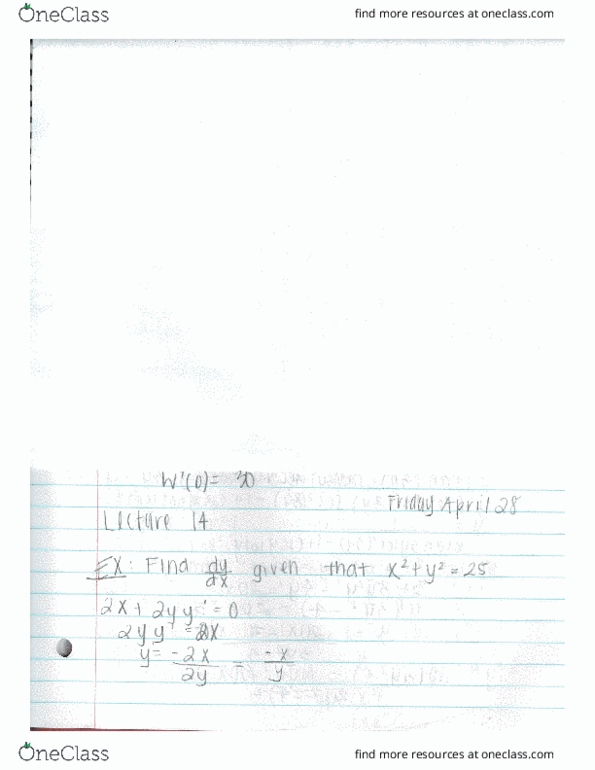 OneClass find more resources at oneclass.com
W'(0)= 30
Friday April 28
Lecture 14
EX: Find dy/dx given that x² + y² = 25
2x + 2y y' = 0
2y y' = 2x
y = -2x/2y = -x/y
OneClass find more resources at oneclass.com